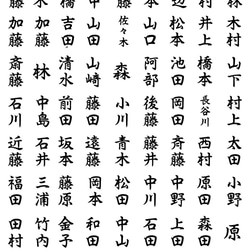 加藤 加藤 吉田 山田 佐々木 山口 松本 井上 木村
斎藤 林 清水 山崎 森 阿部 池田 橋本 山下
石川 中島 前田 藤田 小川 後藤 岡田 長谷川 村上
近藤 石井 坂本 遠藤 青木 藤井 斉藤 西村 太田
福田 三浦 藤原 岡本 松田 中川 中野 原田 小野
田村 竹内 金子 和田 中山 石田 上田 森田 原